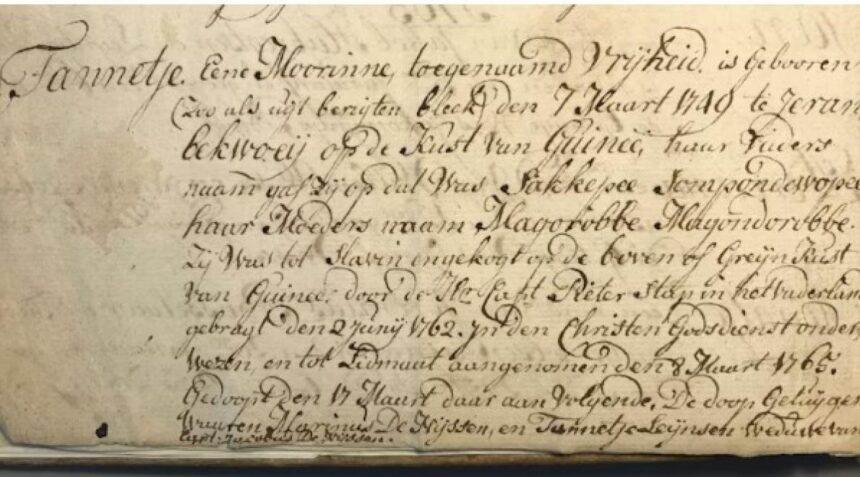 Tannetje. Eene Moorinne, toegenaamd Vrijheid. is Gebooren
(zoo als uijt berigten bleek) den 7 Maart 1749 te Jeram
bekwoeij op de Kust van Guinee, haar Vaders
naam gaf zij op dat Was Sakkepee Sompondewopee
haar Moeders naam Magorobbe Magondorobbe.
Zij Was tot Slavin ingekogt op de boven of Greijn Kust
van Guinee, door de Hr Capt Pieter Stap in het vaderlam
gebragt den 2 Junij 1762. Jn den Christen Godsdienst onder,
wezen, en tot Lidmaat aangenomen den 8 Maart 1765.
Gedoopt den 17 Maart daar aan Volgende. De doop Getuijgen
Waaren Marinus De Nijssen, en Tannetje Leijnsen weduwe van
Capt: Jacobus De